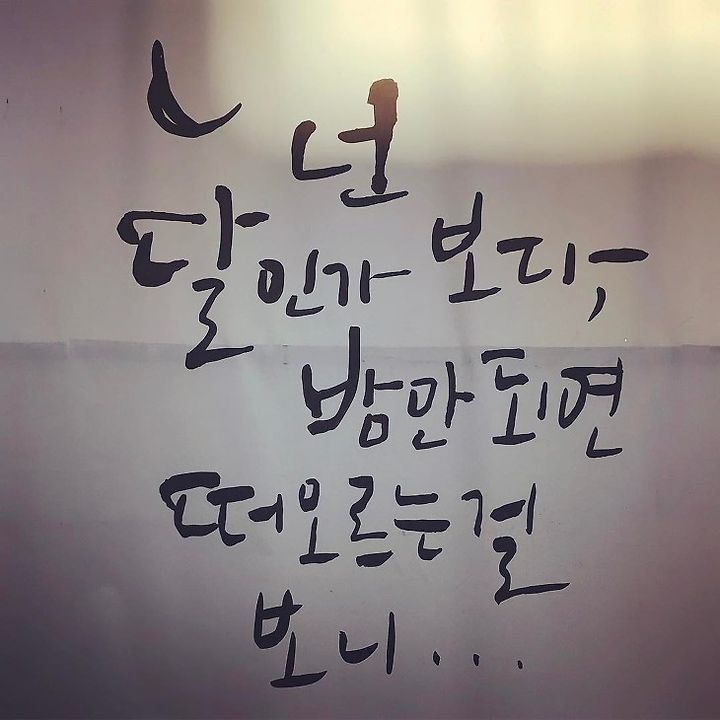 넌
달인가 보다,
밤만 되면
떠오르는 걸
보니...